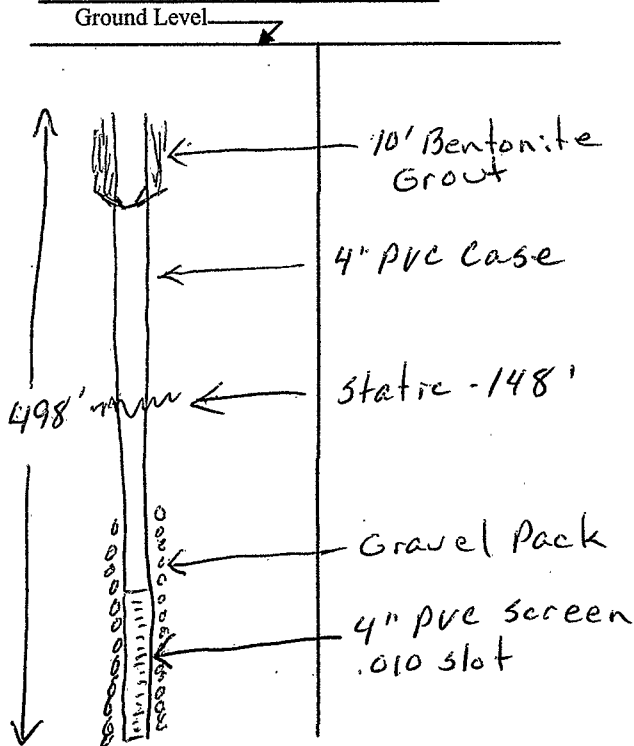 Ground Level
10' Bentonite
Grout
4" PVC Case
Static - 148'
498'
Gravel Pack
4" PVC Screen
.010 slot